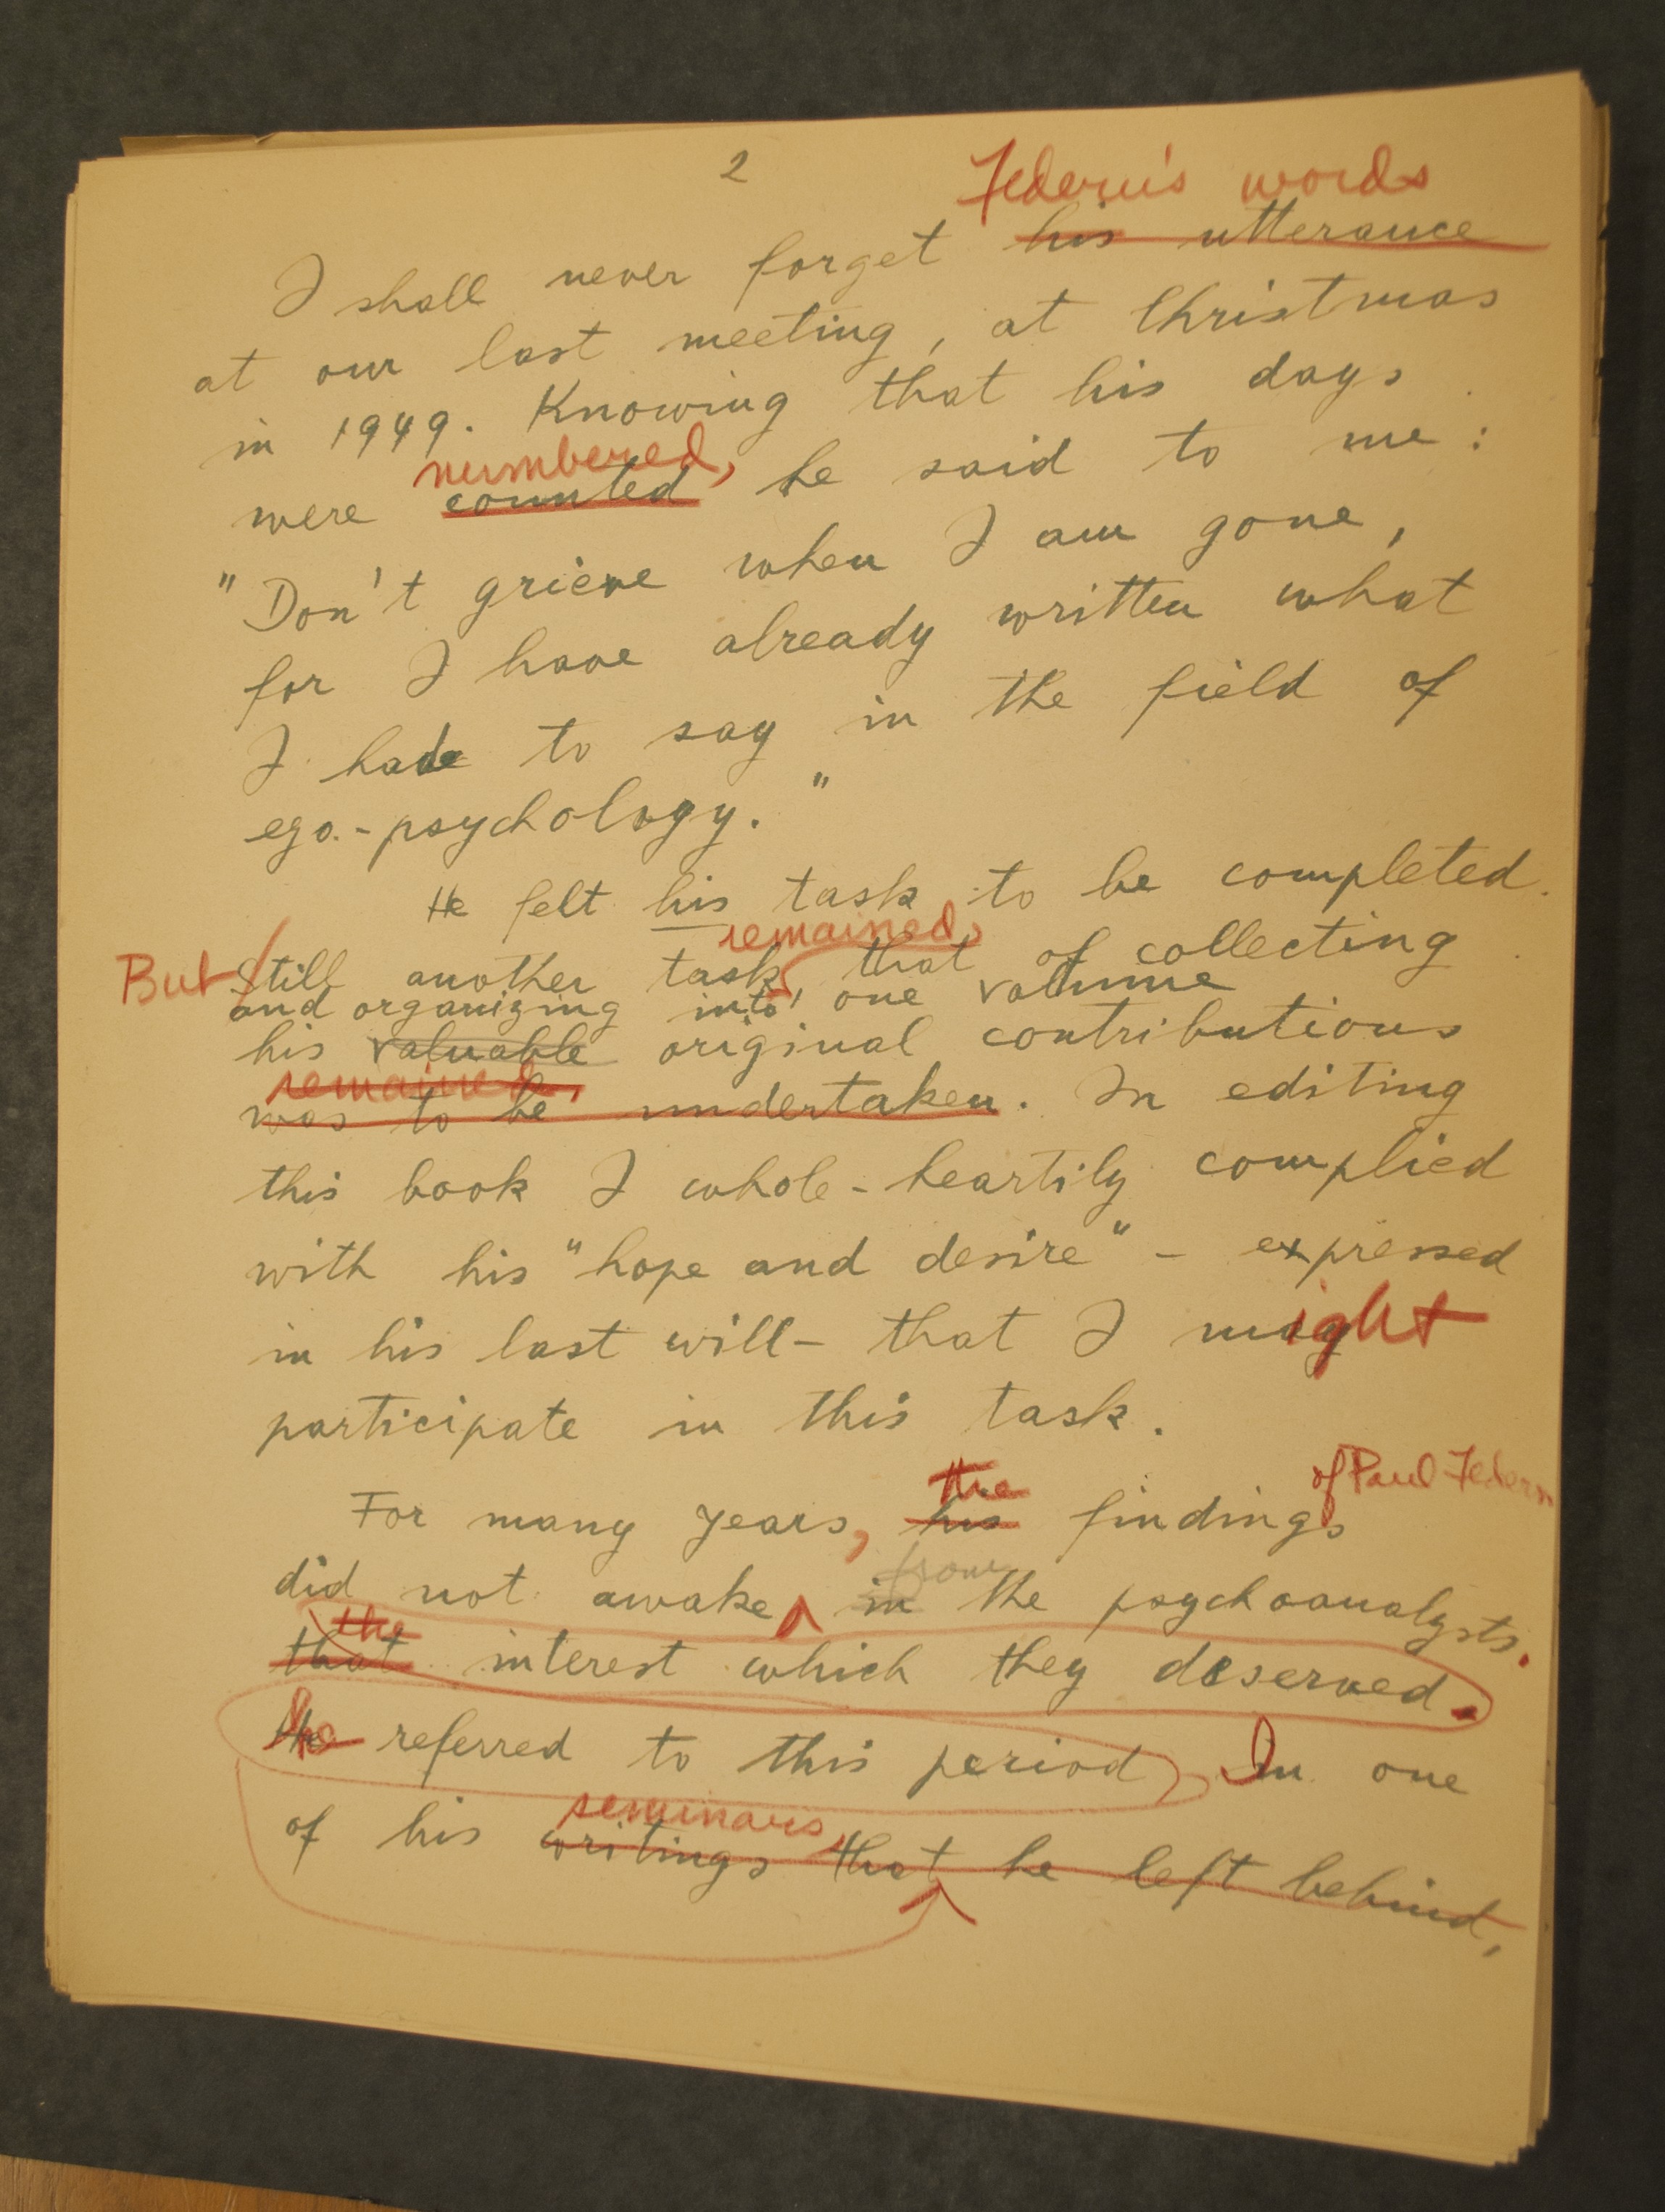 2
Federn's words
I shall never forget his utterance
at our last meeting, at Christmas
in 1949. Knowing that his days
numbered,
were counted he said to me:
"Don't grieve when I am gone,
for I have already written what
I had to say in the field of
ego-psychology."
He felt his task to be completed.
remained,
But still another task, that of collecting
and organizing into one volume
his valuable original contributions
remained,
was to be undertaken. In editing
this book I whole-heartily complied
with his "hope and desire" - expressed
in his last will- that I might
participate in this task.
the of Paul Federn
For many years, his findings
from
did not awake in the psychoanalysts.
the
that interest which they deserved.
he referred to this period In one
seminars,
of his writings that he left behind,